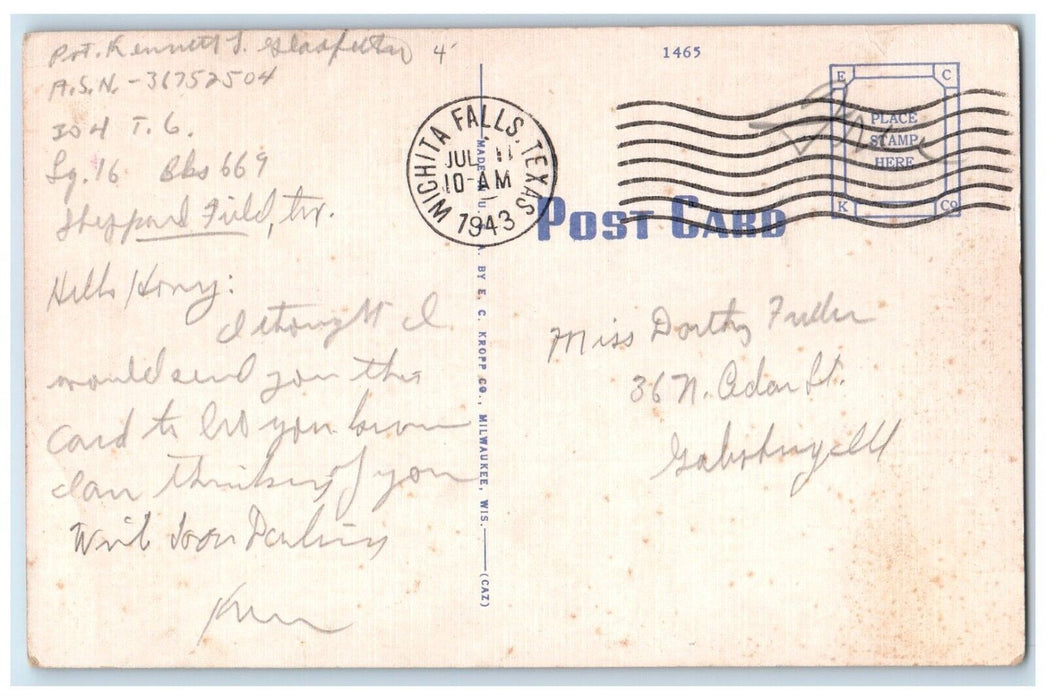 Pvt. Kenneth J.
A.S.N. - 36752504
304 T.G.
Sq. 16 Bks 669
Sheppard Field, Tex.
Hello Honey:
I thought I
would send you this
card to let you know
I am thinking of you
Write Soon Darling
Ken
1465
WICHITA FALLS, TEXAS
JUL 11
10-AM
1943
E C
PLACE
STAMP
HERE
K Co
Free
POST CARD
MADE IN U. S. A. BY E. C. KROPP CO., MILWAUKEE, WIS. (CAZ)
Miss Dorthy Fuller
36 N. Cedar St.
Galesburg Ill